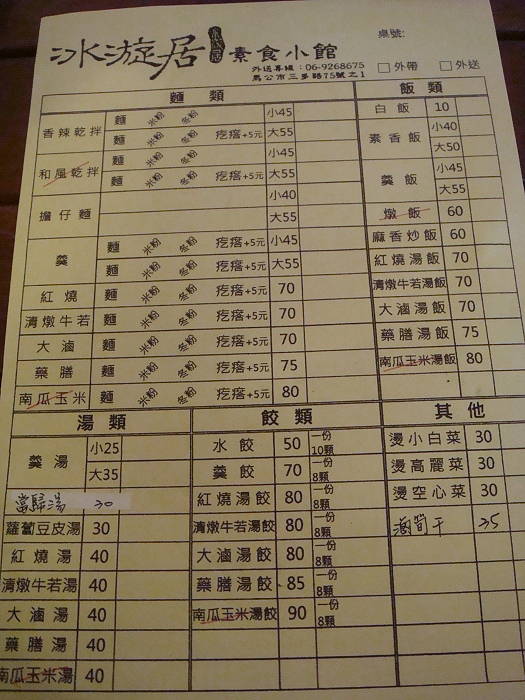 冰漩居 素食小館
桌號:
外送專線：06-9268675 □外帶 □外送
馬公市三多路75號之1
麵類
香辣乾拌 麵 米粉 冬粉 小45
麵 米粉 冬粉 疙瘩+5元 大55
和風乾拌 麵 米粉 冬粉 小45
麵 米粉 冬粉 疙瘩+5元 大55
擔仔麵 小40
大55
羹 麵 米粉 冬粉 疙瘩+5元 小45
麵 米粉 冬粉 疙瘩+5元 大55
紅燒 麵 米粉 冬粉 疙瘩+5元 70
清燉牛若 麵 米粉 冬粉 疙瘩+5元 70
大滷 麵 米粉 冬粉 疙瘩+5元 70
藥膳 麵 米粉 冬粉 疙瘩+5元 75
南瓜玉米 麵 米粉 冬粉 疙瘩+5元 80
飯類
白飯 10
素香飯 小40
大50
羹飯 小45
大55
燉飯 60
麻香炒飯 60
紅燒湯飯 70
清燉牛若湯飯 70
大滷湯飯 70
藥膳湯飯 75
南瓜玉米湯飯 80
湯類
羹湯 小25
大35
當歸湯 30
蘿蔔豆皮湯 30
紅燒湯 40
清燉牛若湯 40
大滷湯 40
藥膳湯 40
南瓜玉米湯 40
餃類
水餃 50 一份10顆
羹餃 70 一份8顆
紅燒湯餃 80 一份8顆
清燉牛若湯餃 80 一份8顆
大滷湯餃 80 一份8顆
藥膳湯餃 85 一份8顆
南瓜玉米湯餃 90 一份8顆
其他
燙小白菜 30
燙高麗菜 30
燙空心菜 30
滷筍干 35